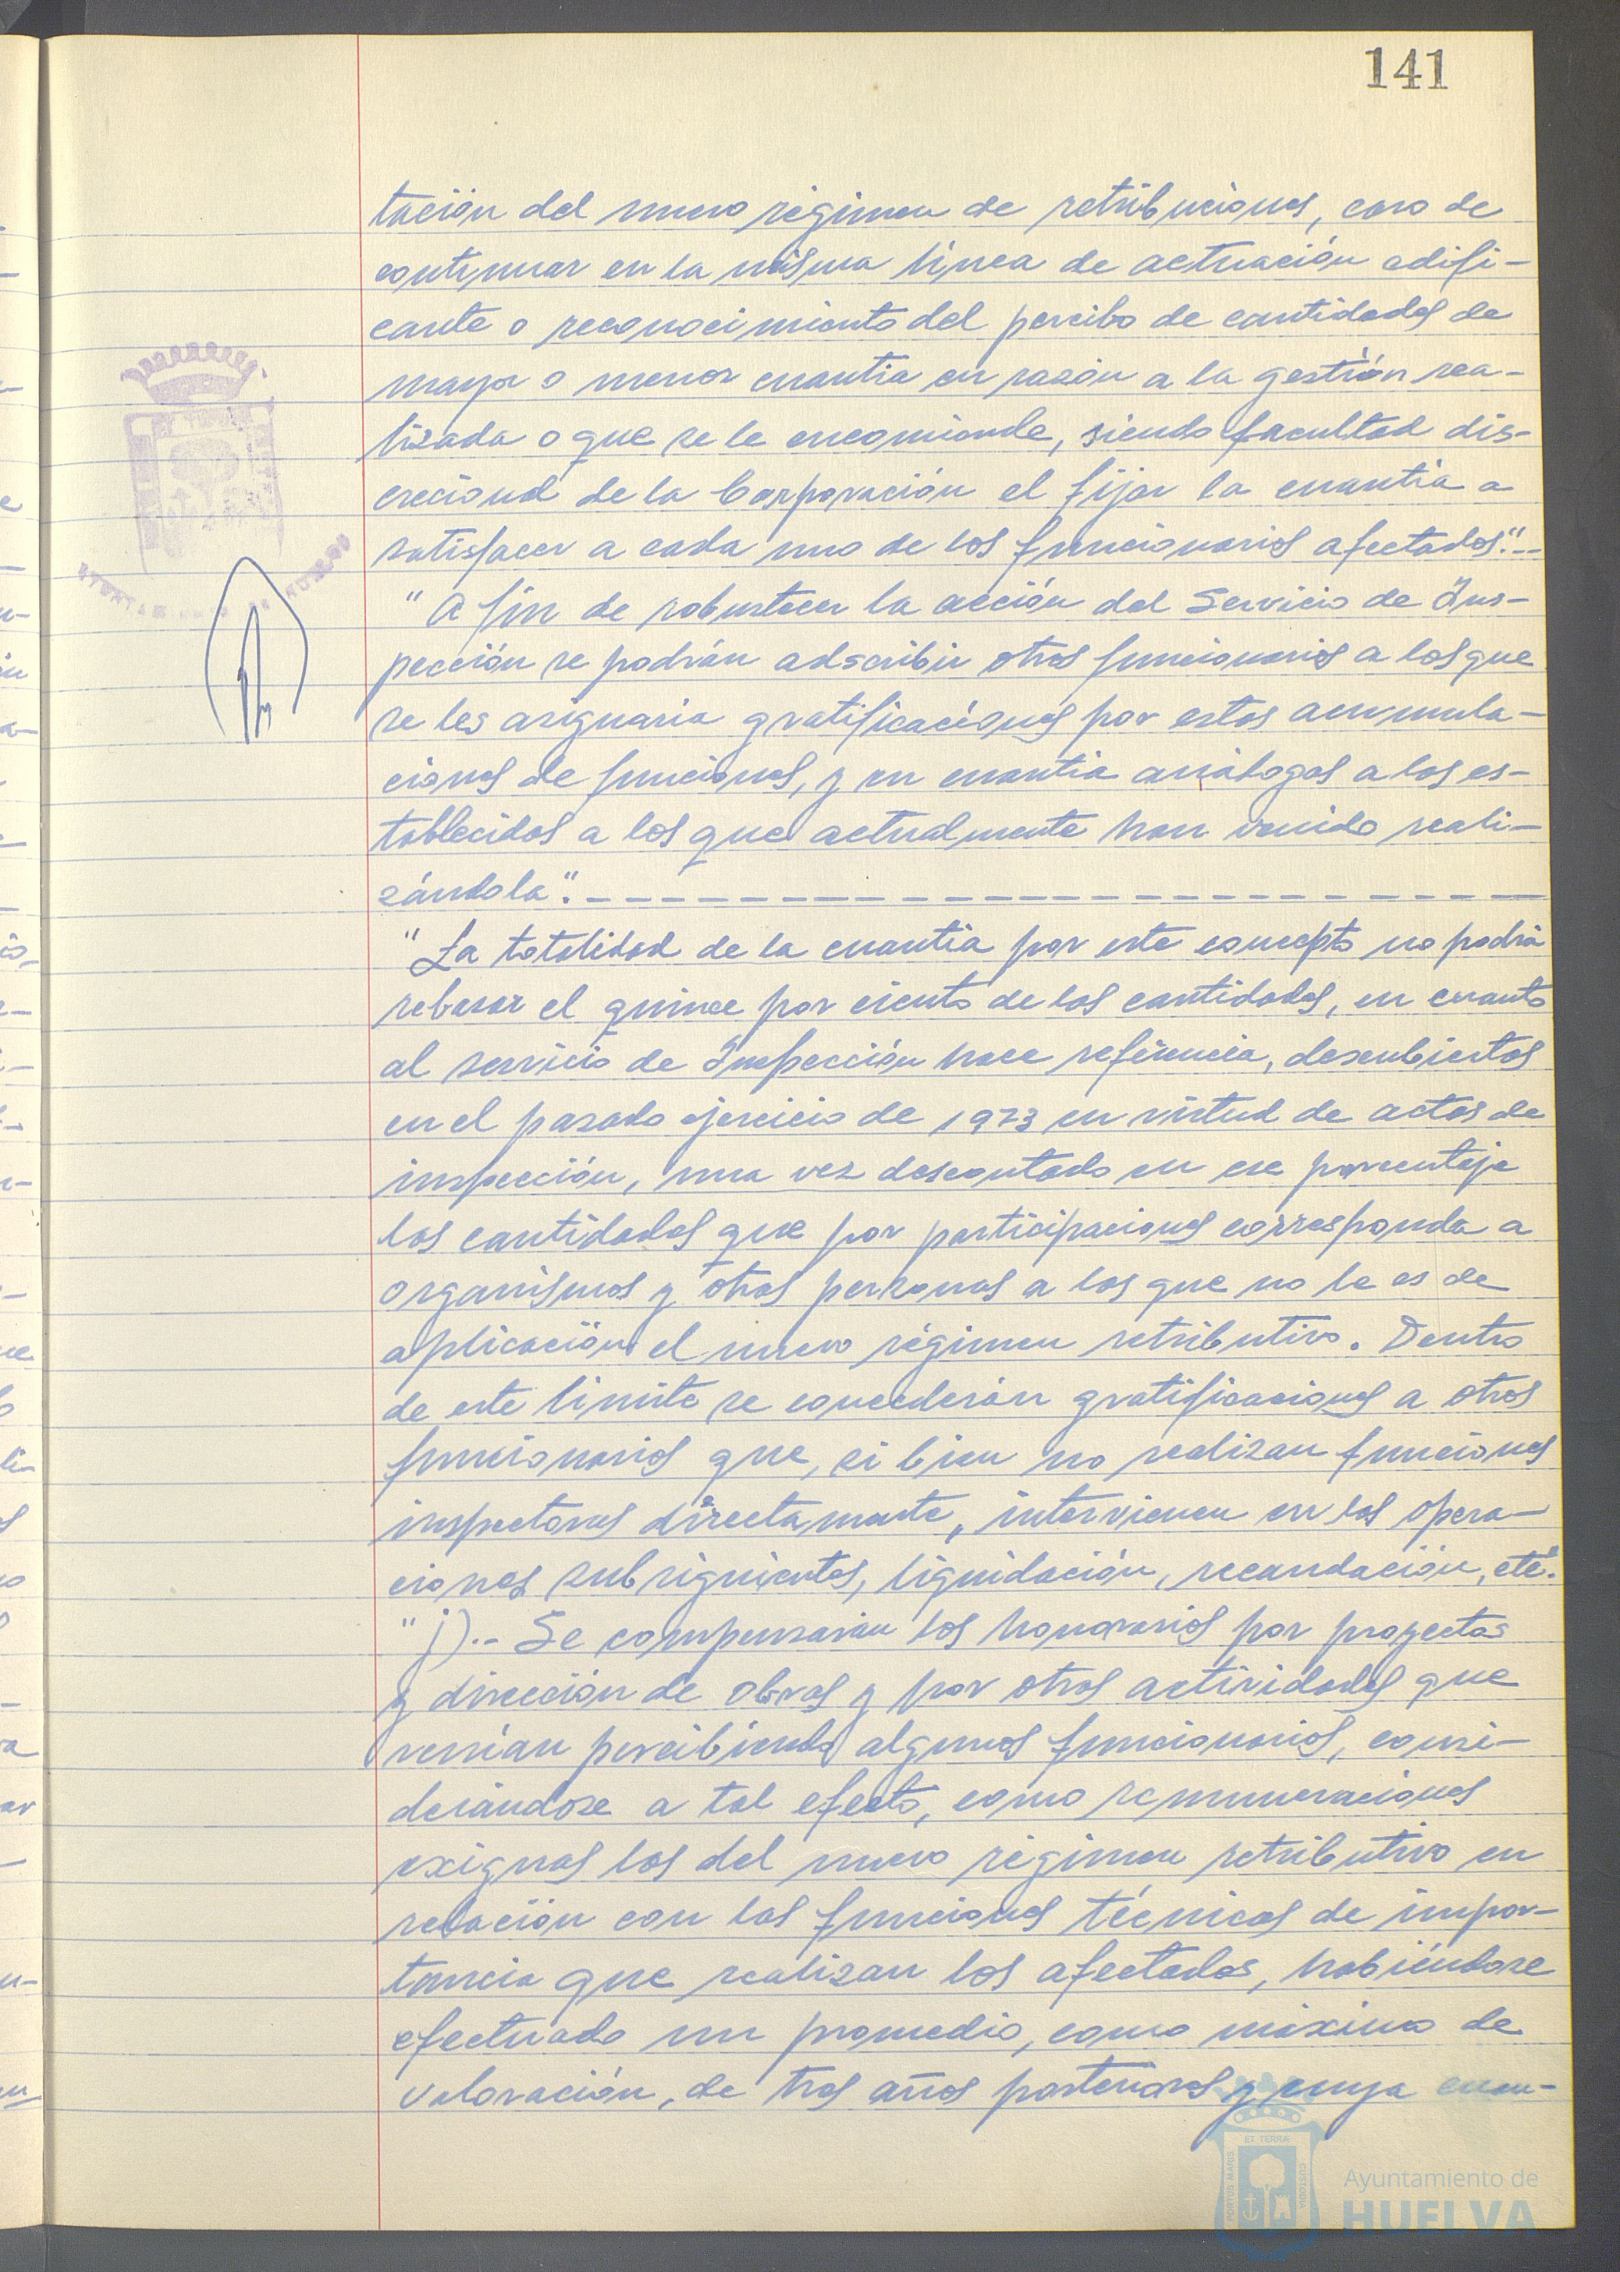 141
tación del nuevo régimen de retribuciones, caso de
continuar en la misma línea de actuación edifi-
cante o reconocimiento del percibo de cantidades de
mayor o menor cuantia en razón a la gestión rea-
lizada o que se le encomiende, siendo facultad dis-
crecional de la Corporación el fijar la cuantia a
satisfacer a cada uno de los funcionarios afectados".--
"A fin de robustecer la acción del Servicio de Ins-
pección se podrán adscribir otros funcionarios a los que
se les asignaria gratificaciones por estas acumula-
ciones de funciones, y en cuantia análogas a los es-
tablecidos a los que actualmente han venido reali-
zándola".- - - - - - - - - - - - - - - - - - - - - - - - -
"La totalidad de la cuantia por este concepto no podrá
rebasar el quince por ciento de las cantidades, en cuanto
al servicio de Inspección hace referencia, descubiertas
en el pasado ejercicio de 1973 en virtud de actas de
inspección, una vez descontado en ese porcentaje
las cantidades que por participaciones corresponda a
organismos y otras personas a los que no le es de
aplicación el nuevo régimen retributivo. Dentro
de este limite se concederán gratificaciones a otros
funcionarios que, si bien no realizan funciones
inspectoras directamente, intervienen en las opera-
ciones subsiguientes, liquidación, recaudación, etc".
"j).- Se compensarán los honorarios por proyectos
y dirección de obras y por otras actividades que
venían percibiendo algunos funcionarios, consi-
derándose a tal efecto, como remuneraciones
exiguas las del nuevo régimen retributivo en
relación con las funciones técnicas de impor-
tancia que realizan los afectados, habiéndose
efectuado un promedio, como máximo de
valoración, de tres años posteriores y cuya cuan-
ET TERRÆ
PORTUS MARIS
CUSTODIA
Ayuntamiento de
HUELVA